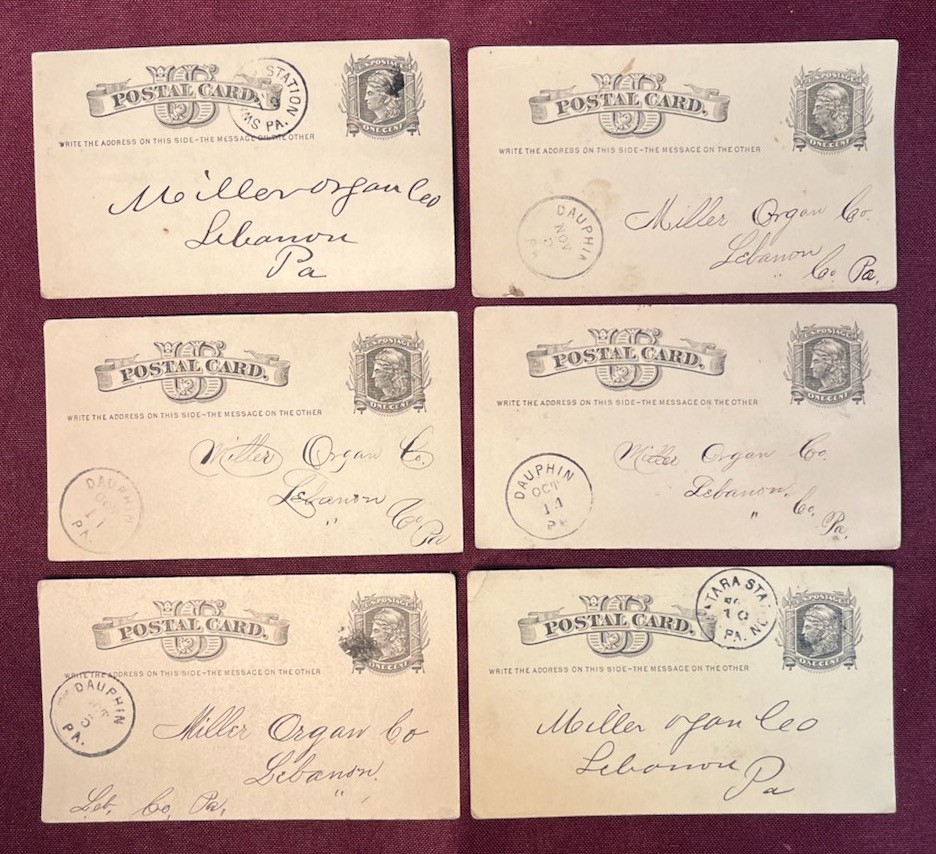 US
POSTAL CARD.
STATION
MS PA.
U.S. POSTAGE
ONE CENT
WRITE THE ADDRESS ON THIS SIDE-THE MESSAGE ON THE OTHER
Miller organ Co
Lebanon
Pa
US
POSTAL CARD.
U.S. POSTAGE
ONE CENT
WRITE THE ADDRESS ON THIS SIDE-THE MESSAGE ON THE OTHER
DAUPHIN
NOV
Miller Organ Co.
Lebanon
" Co Pa.
US
POSTAL CARD.
U.S. POSTAGE
ONE CENT
WRITE THE ADDRESS ON THIS SIDE-THE MESSAGE ON THE OTHER
Miller Organ Co.
Lebanon
" Co
Pa
DAUPHIN
PA.
US
POSTAL CARD.
U.S. POSTAGE
ONE CENT
WRITE THE ADDRESS ON THIS SIDE-THE MESSAGE ON THE OTHER
Miller Organ Co.
Lebanon.
" Co.
Pa.
DAUPHIN
OCT
14
PA
US
POSTAL CARD.
U.S. POSTAGE
ONE CENT
WRITE THE ADDRESS ON THIS SIDE-THE MESSAGE ON THE OTHER
DAUPHIN
PA.
Miller Organ Co
Lebanon.
"
Leb. Co. Pa.
US
POSTAL CARD.
TARA STA
10
PA.
U.S. POSTAGE
ONE CENT
WRITE THE ADDRESS ON THIS SIDE-THE MESSAGE ON THE OTHER
Miller ogan Co
Lebanon
Pa